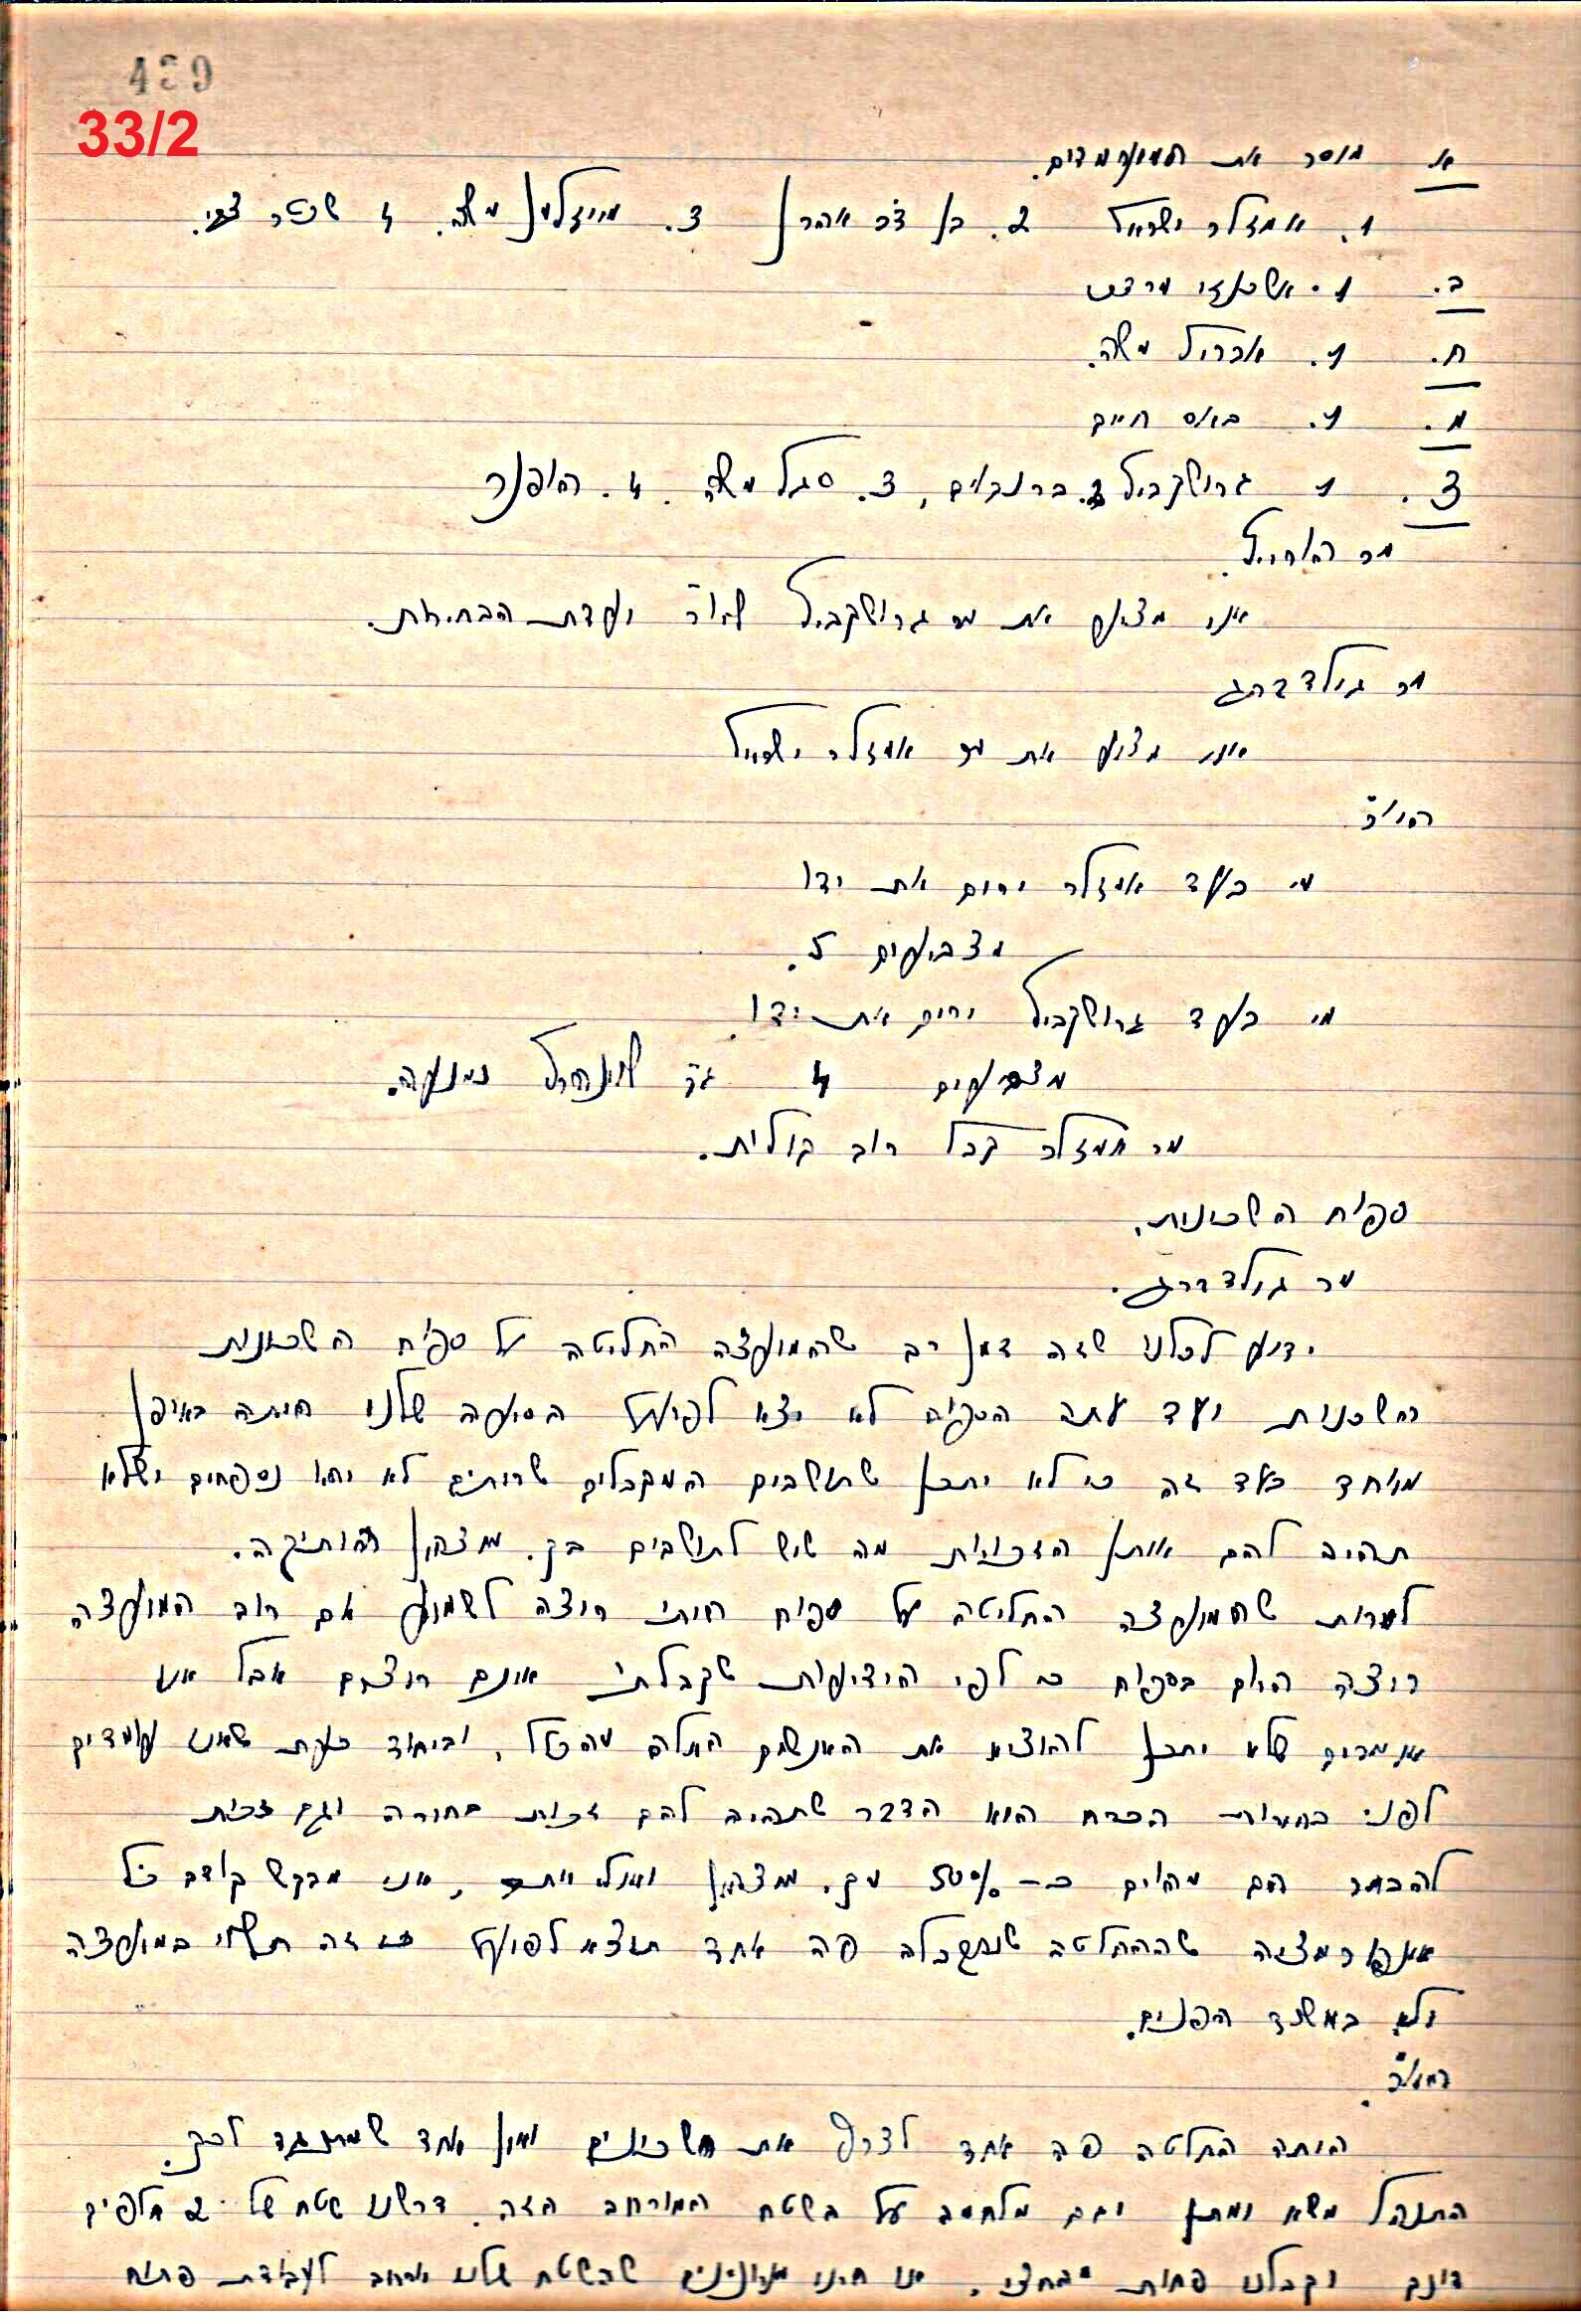 439
33/2
א. מוסר את המועמדים.
1. אמזלר ישראל 2. בן צבי אהרן 3. מייזלמן משה. 4 שפר צבי.
ב. 1. אשכנזי מרדכי
ח. 1. אבריל משה.
מ. 1. באס חיים
צ. 1 גרושקביץ 2. ברנבוים, 3. סגל משה. 4. הופנר
מר
אני מציע את מר גרושקביץ ליו"ר ועדת הבחירות.
מר גולדברג
אני מציע את מר אמזלר ישראל
היו"ר
מי בעד אמזלר ירים את ידו
מצביעים 5.
מי בעד גרושקביץ ירים את ידו.
מצביעים 4 גב' נמנעה.
מר אמזלר קבל רוב קולות.
ספוח השכונות.
מר גולדברג.
ידוע לכלנו שזה זמן רב שהמועצה החליטה על ספוח השכונות
השכונות ועד עתה הספוח לא יצא לפועל הסיעה שלנו היתה באופן
מיוחד בעד זה כי לא יתכן שתושבים המקבלים שרותים לא יהיו נספחים ושלא
תהיה להם אותן הזכויות מה שיש לתושבים בק. מוצקין הותיקה.
למרות שהמועצה החליטה על ספוח הייתי רוצה לשמוע אם רוב המועצה
רוצה היום בספוח כי לפי הידיעות שקבלתי אינם רוצים אבל אנו
אומרים שלא יתכן להוציא את האנשים האלה מהכלל, וביחוד כעת שאנו עומדים
לפני בחירות הכרח הוא הדבר שתהיה להם זכות בחירה וגם זכות
להבחר הם מהוים כ- 50% מק. מוצקין ואולי יותר, אני מבקש קודם כל
אינפורמציה שההחלטה שנתקבלה פה אחד תוצא לפועל זה תלוי במועצה
ולא במשרד הפנים.
היו"ר.
היתה החלטה פה אחד לצרף את השכונים ואין אחד שמתנגד לכך.
התנהל משא ומתן וגם מלחמה על השטח המורחב הזה. דרשנו שטח של 2 אלפים
דונם וקבלנו פחות מהחצי. אנו היינו מעונינים שהשטח שלנו ירחב לעבודת פתוח